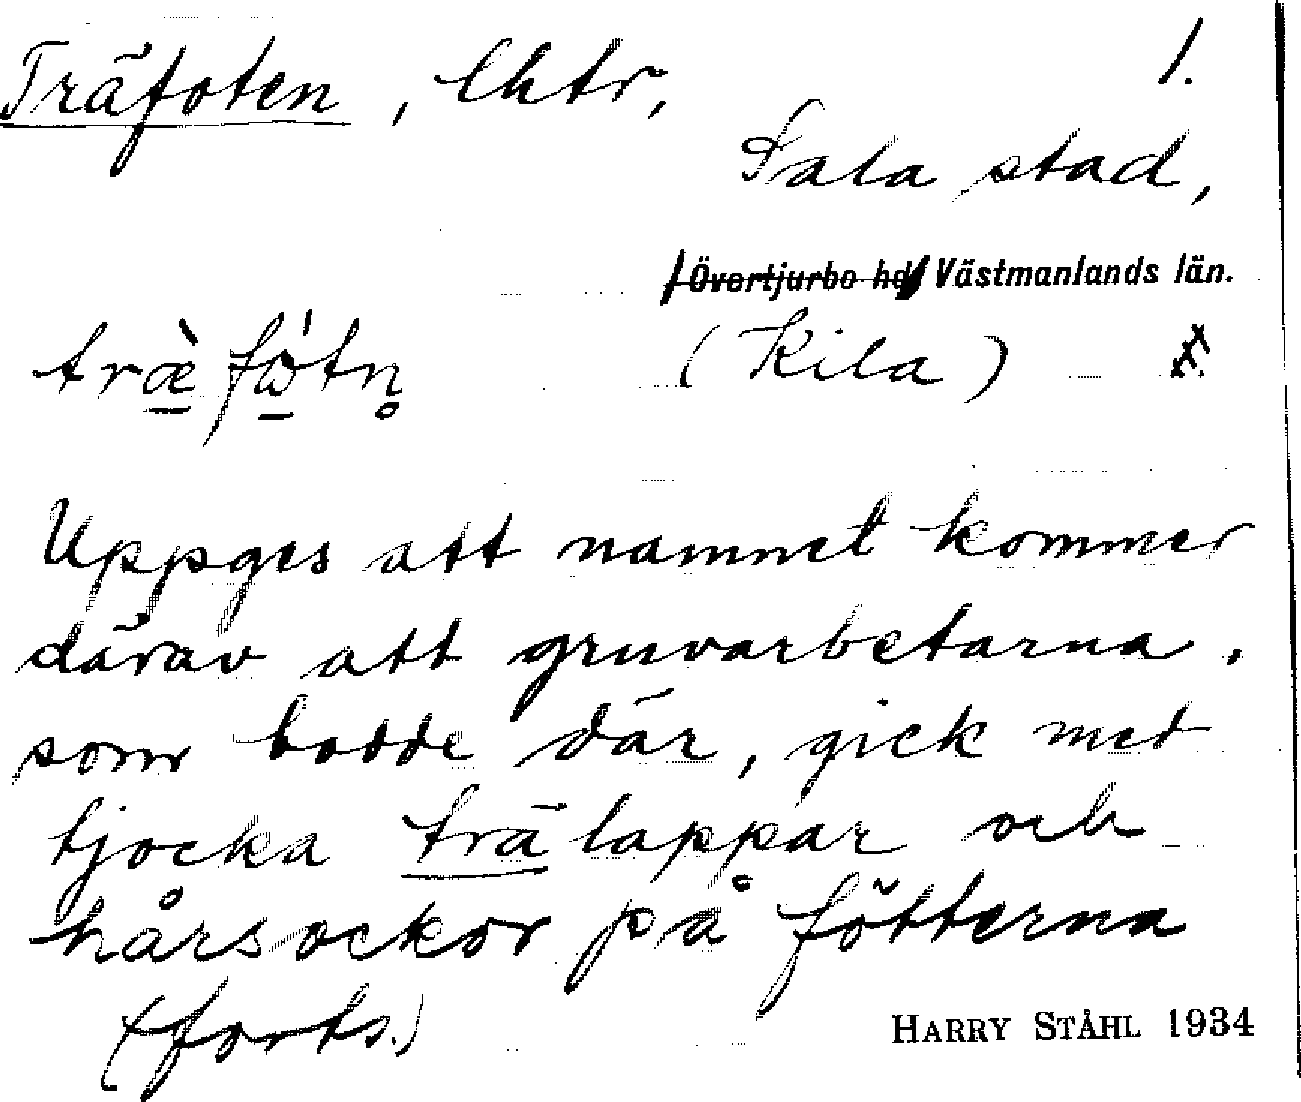 Träfoten, lhtr, 1.
Sala stad,
Övertjurbo hd Västmanlands län.
træ̀fὼ́tn̥ (Kila)
Uppges att namnet kommer
därav att gruvarbetarna,
som bodde där, gick met
tjocka trälappar och
hårsockor på fötterna
(forts.) HARRY STÅHL 1934